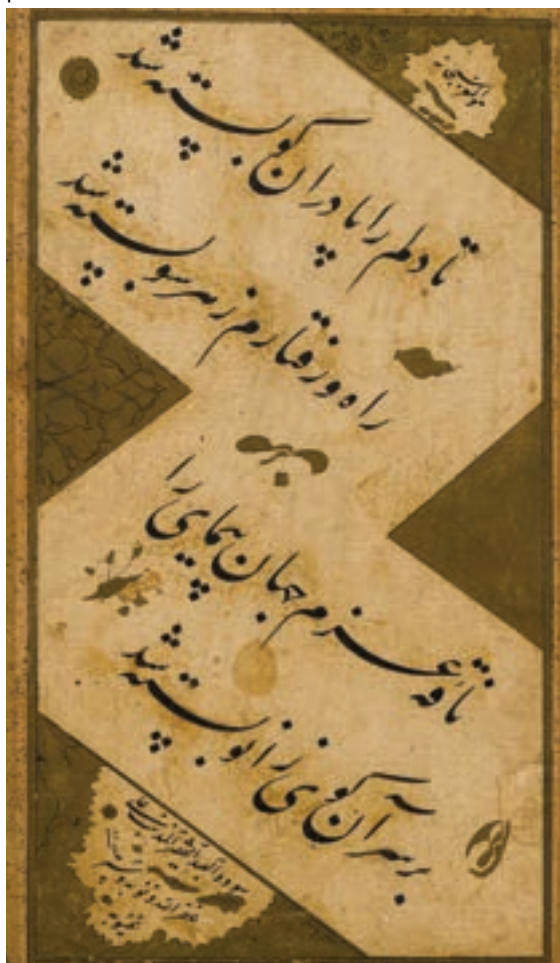 تا دلم را پا در آن کو بسته شد
راه و رفتارم ز هر سو بسته شد
ناقه عزم جهان پیمای را
بر سر آن کوی زانو بسته شد